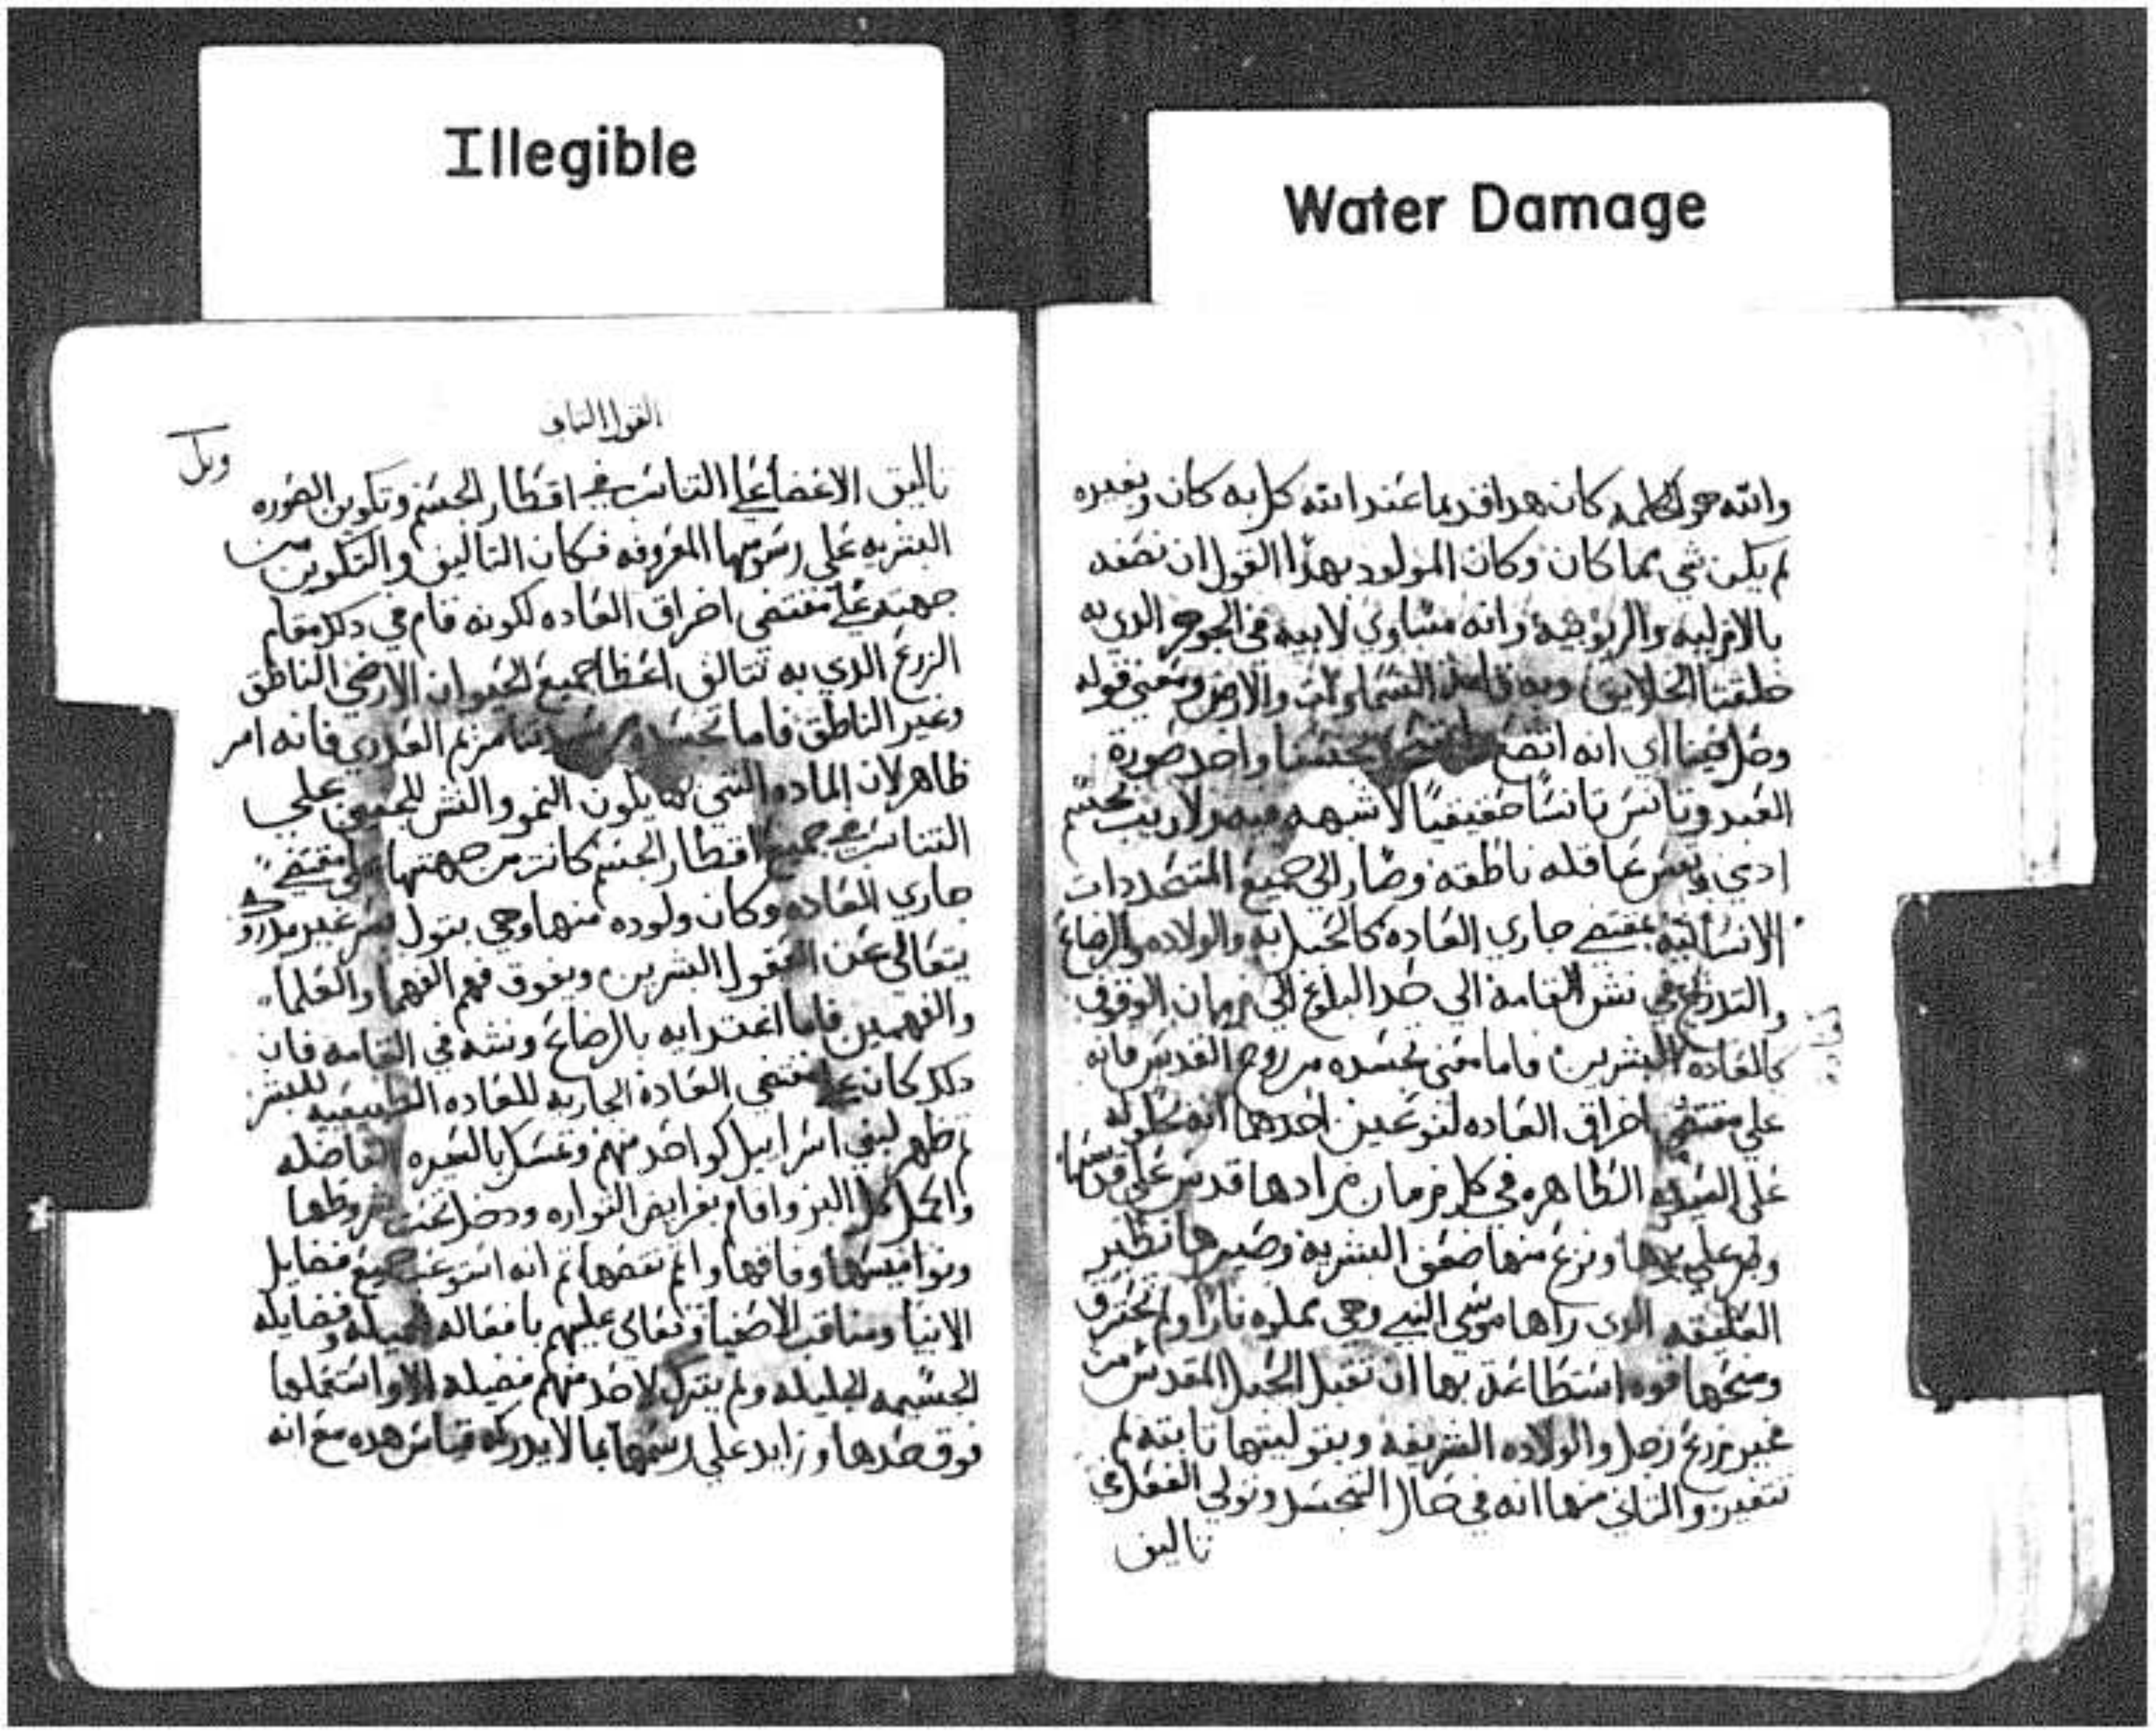 Illegible
Water Damage
والله هو الكلمه كان هدا قديما عند الله كل به كان وبغيره
لم يكن شي مما كان وكان المولود بهدا القول ان نصفه
بالازليه والربوبيه وانه مساوي لابيه في الجوهر الدي به
خلقت الخلايق وبه قامت السماوات والارض ومعني قوله
وحل فينا اي انه اتضع جسدا واخد صورة
العبد وتانس تانسا حقيقيا لا شبهه فيه ولا ريب بجسم
ادي ونفس عاقله ناطقه وصار الي جميع المتجددات
الانسانيه بمقتضي جاري العاده كالحبل به والولاده والرضاع
والتدرج في نشو القامه الي حد البلاغ الي زمان الوقوف
كالعاده البشرين فاما معني تجسده من روح القدس فانه
علي مقتضي اخراق العاده لنوعين احدهما انه بحلوله
علي السيده الطاهره في كل زمان زادها قدس علي قدسها
وطهر علي طهرها ونزع منها ضعف البشريه وصيرها نظير
العليقه الدي راها موسي النبي وهي مملوه نارا ولم تحترق
ومنحها قوه استطاعت بها ان تقبل الحبل المقدس من
غير زرع رجل والولاده الشريفه وبتوليتها تابته لم
تتغير والتاني منها انه في حال التجسد وتولي الفعل في
تاليف
القول التاني
وبل
تاليف الاعضا علي التناسب في اقطار الجسم وتكوين الصوره
البشريه علي رسومها المعروفه فكان التاليف والتكوين من
جهته علي مقتضي اخراق العاده لكونه قام في دلك مقام
الزرع الدي به تتالف اعضا جميع الحيوان الارضي الناطق
وغير الناطق فاما تجسده من مريم العدري فانه امر
ظاهر لان الماده التي بها يكون النمو والنشو للجنين علي
التناسب في جميع اقطار الجسم كانت من جهتها علي مقتضي
جاري العاده وكان ولوده منها وهي بتول سر غير مدروك
يتعالي عن العقول البشرين ويفوق فهم الفهما والعلما
والفهمين فاما اغتدايه بالرضاع ونشه في القامه فان
دلك كان علي مقتضي العادة الجاريه للعاده الطبيعيه للبشر
تم ظهر لبني اسراييل كواحد منهم وتمسك بالسيره الفاضله
واكمل كل البر واقام بفرايض التوراه ودخل تحت شروطها
ونواميسها وفاقها ولم نقضها تم انه استوعب جميع فضايل
الانبيا ومناقب الاصفيا وتعالي عليهم بافعاله الجميله وفضايله
الجسيمه الجليله ولم يترك لاحد منهم فضيله الا واستكملها
فوق حدها وزايد علي رسمها بما لا يدركه قياس هده مع انه